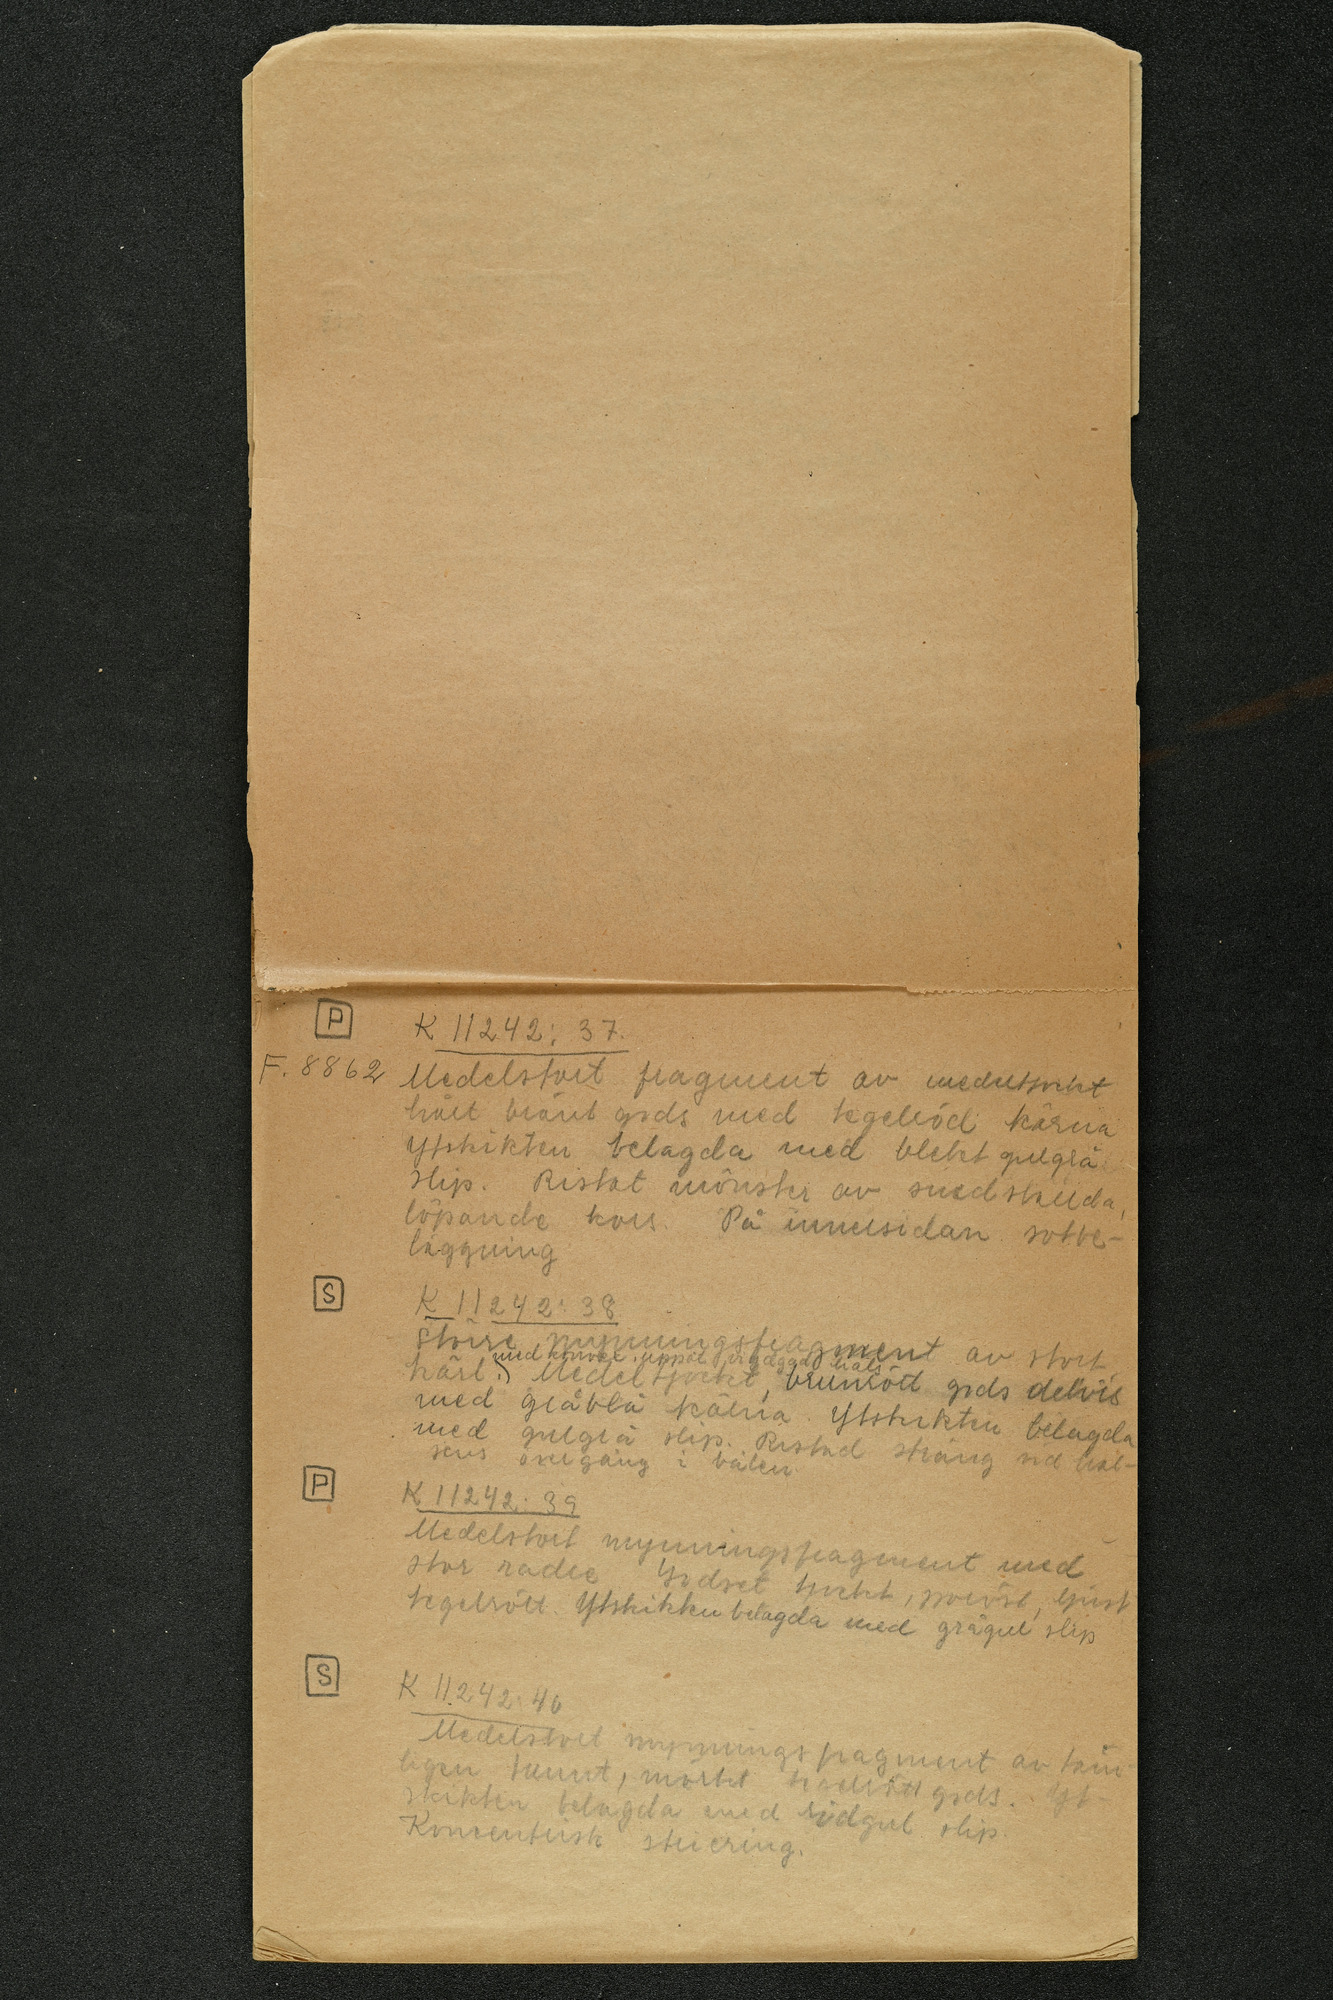 P K 11242: 37.
F. 8862 Medelstort fragment av medeltjockt
hårt bränt gods med tegelröd kärna
Ytskikten belagda med blekt gulgrå
slip. Ristat mönster av snedställda,
löpande kors. På innersidan sotbe-
läggning
S K 11242: 38
Större mynningsfragment av stort
med konvex, uppåt vidgad hals
kärl. Medeltjockt, brunrött gods delvis
med gråblå kärna. Ytskikten belagda
med gulgrå slip. Ristad sträng vid hal-
sens övergång i bålen.
P K 11242: 39
Medelstort mynningsfragment med
stor radie Godset tjockt, poröst, ljust
tegelrött. Ytskikten belagda med grågul slip
S K 11242: 40
Medelstort mynningsfragment av täm-
ligen tunnt, mörkt gods. Yt-
skikten belagda med rödgul slip.
Koncentrisk striering.